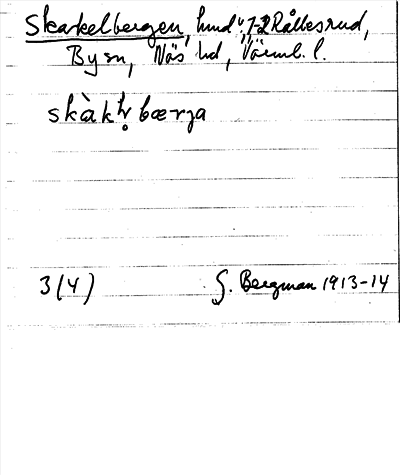 Skarkelbergen, hmd u. 1-2 Råbesrud,
By sn, Näs hd, Värml. l.
skàkḷbærja
3(4)
G. Bergman 1913-14